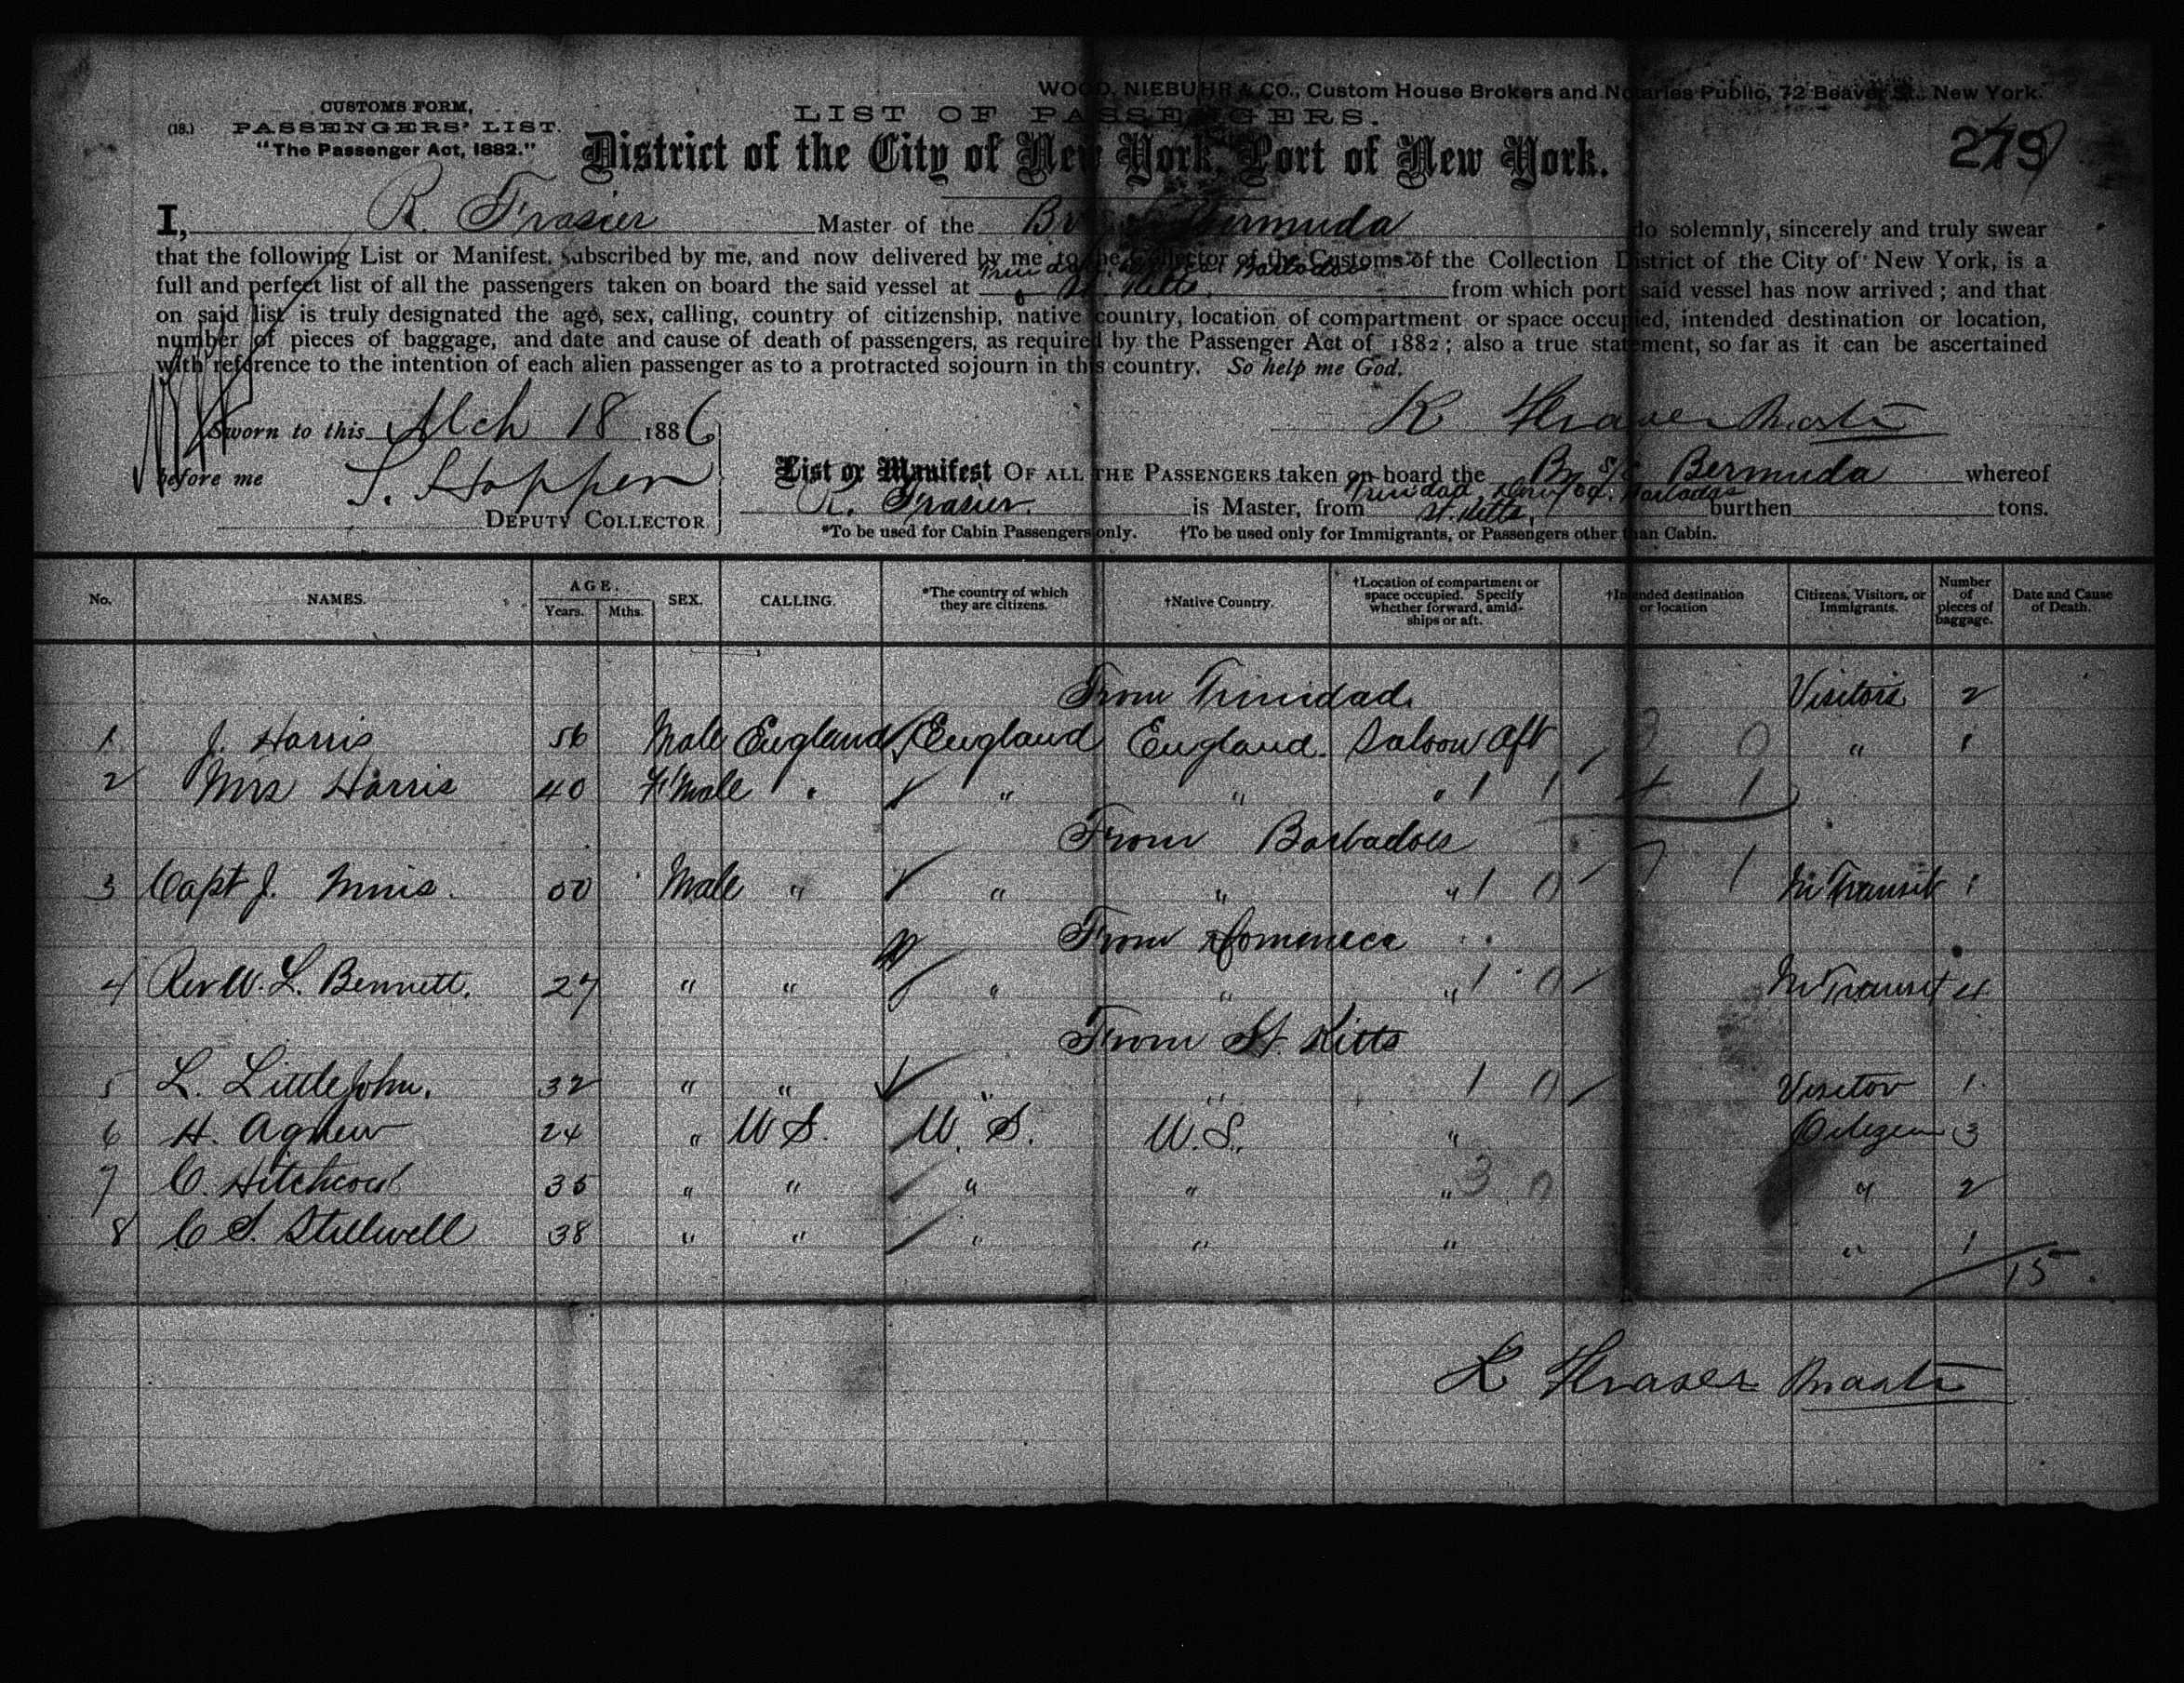 WOOD, NIEBUHR & CO., Custom House Brokers and Notaries Public, 72 Beaver St., New York.
CUSTOMS FORM,
(18.) PASSENGERS' LIST.
"The Passenger Act, 1882."
LIST OF PASSENGERS.
District of the City of New York, Port of New York.
279
I, R. Frasier Master of the Br Bermuda do solemnly, sincerely and truly swear
that the following List or Manifest, subscribed by me, and now delivered by me to the Collector of the Customs of the Collection District of the City of New York, is a
full and perfect list of all the passengers taken on board the said vessel at Trinidad Barbados St. Kitts from which port said vessel has now arrived; and that
on said list is truly designated the age, sex, calling, country of citizenship, native country, location of compartment or space occupied, intended destination or location,
number of pieces of baggage, and date and cause of death of passengers, as required by the Passenger Act of 1882; also a true statement, so far as it can be ascertained
with reference to the intention of each alien passenger as to a protracted sojourn in this country. So help me God.
R Fraser Master
Sworn to this Mch 18 1886
before me S. Hopper
DEPUTY COLLECTOR
List or Manifest OF ALL THE PASSENGERS taken on board the Br S/S Bermuda whereof
R. Frasier. is Master, from Trinidad, Barbados St. Kitts, burthen tons.
*To be used for Cabin Passengers only. †To be used only for Immigrants, or Passengers other than Cabin.
No. NAMES. AGE. Years. Mths. SEX. CALLING. *The country of which they are citizens. †Native Country. †Location of compartment or space occupied. Specify whether forward, amidships or aft. †Intended destination or location Citizens, Visitors, or Immigrants. Number of pieces of baggage. Date and Cause of Death.
From Trinidad. Visitors 2
1 J. Harris 56 Male England England England. Saloon Aft 0 " 1
2 Mrs Harris 40 F'male " " " " 1 1 4 1
From Barbadoes
3 Capt J. 50 Male " " " " 1 0 7 1 In Transit 1
From Domeneca
4 Rev W. L. Bennett. 27 " " " " " 1 0 In Transit 4
From St. Kitts
5 L. LittleJohn. 32 " " " " 1 0 Visitor 1
6 H. Agnew 24 " U S. U. S. U.S. " Citizen 3
7 C. Hitchcock 35 " " " " " 3 0 " 2
8 C S. Stillwell 38 " " " " " " 1
15.
R Fraser Master